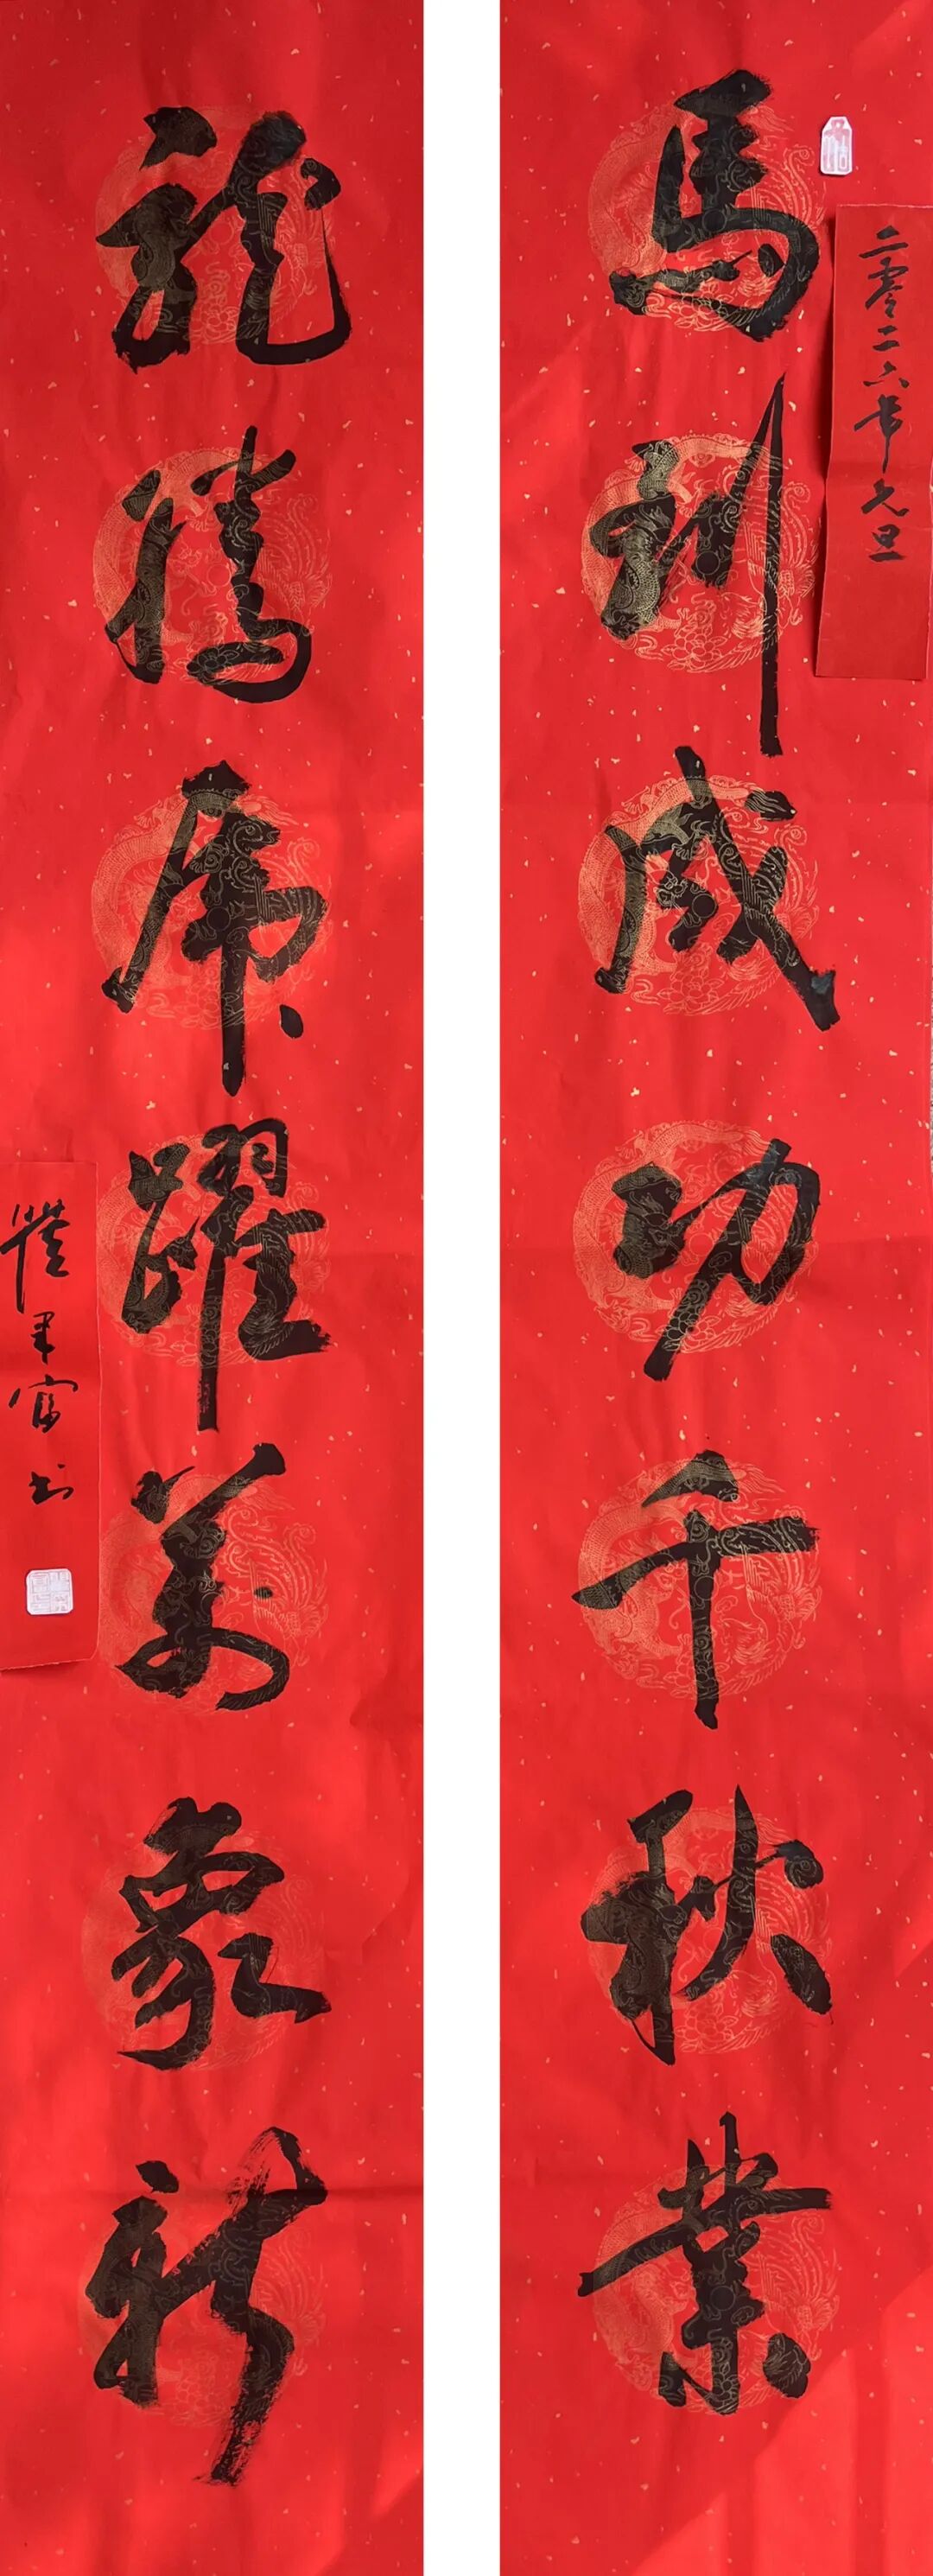 二零二六年元旦
馬到成功千秋業
龍騰虎躍萬象新